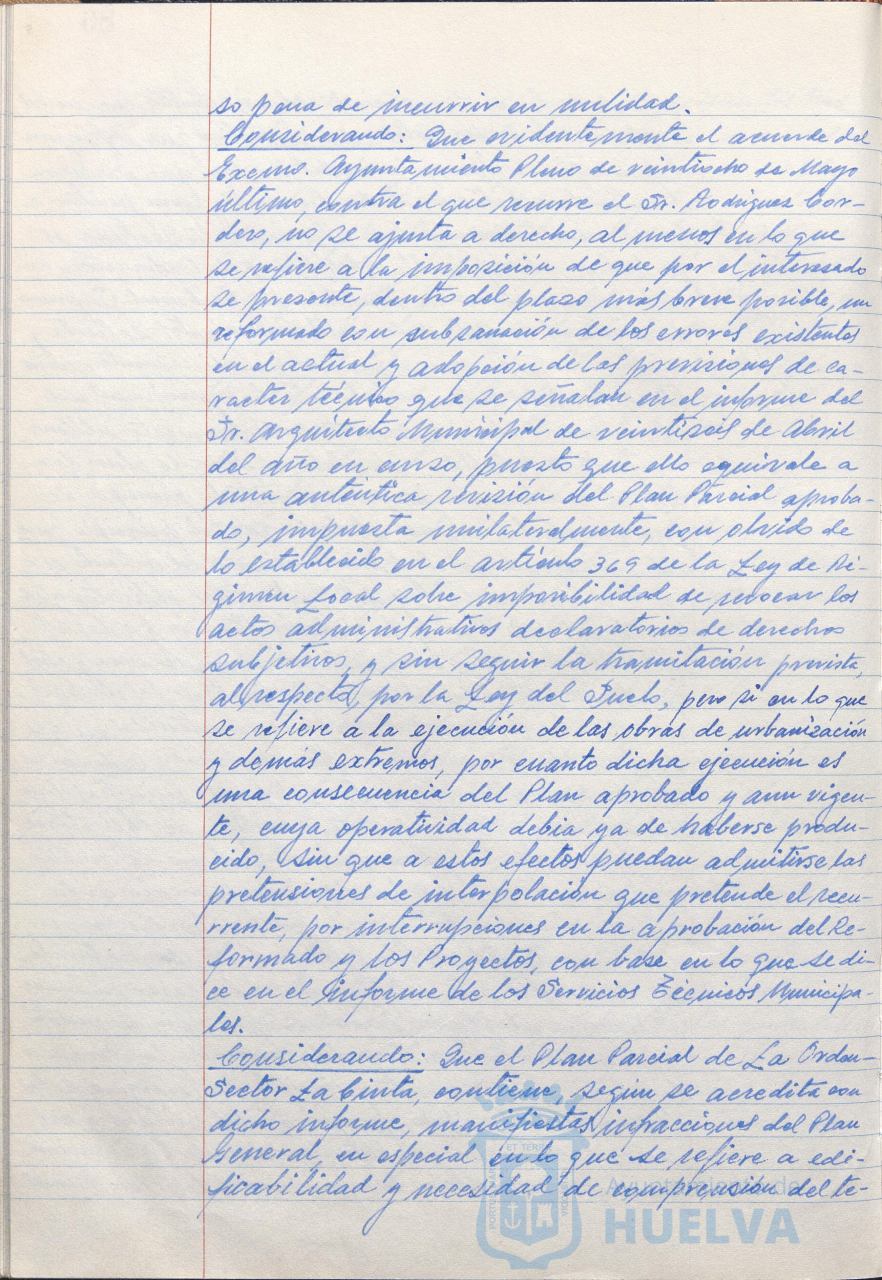 so pena de incurrir en nulidad.
Considerando: Que evidentemente el acuerdo del
Excmo. Ayuntamiento Pleno de veintiocho de Mayo
último, contra el que recurre el Sr. Rodríguez Cor-
dero, no se ajusta a derecho, al menos en lo que
se refiere a la imposición de que por el interesado
se presente, dentro del plazo más breve posible, un
reformado con subsanación de los errores existentes
en el actual y adopción de las previsiones de ca-
racter técnico que se señalan en el informe del
Sr. Arquitecto Municipal de veintiseis de Abril
del año en curso, puesto que ello equivale a
una auténtica revisión del Plan Parcial aproba-
do, impuesta unilateralmente, con olvido de
lo establecido en el artículo 369 de la Ley de Ré-
gimen Local sobre imposibilidad de revocar los
actos administrativos declaratorios de derechos
subjetivos, y sin seguir la tramitación prevista,
al respecto, por la Ley del Suelo, pero si en lo que
se refiere a la ejecución de las obras de urbanización
y demás extremos, por cuanto dicha ejecución es
una consecuencia del Plan aprobado y aun vigen-
te, cuya operatividad debia ya de haberse produ-
cido, sin que a estos efectos puedan admitirse las
pretensiones de interpolación que pretende el recu-
rrente, por interrupciones en la aprobación del Re-
formado y los Proyectos, con base en lo que se di-
ce en el informe de los Servicios Técnicos Municipa-
les.
Considerando: Que el Plan Parcial de La Orden-
Sector La Cinta, contiene, según se acredita con
dicho informe, manifiestas infracciones del Plan
General, en especial en lo que se refiere a edi-
ficabilidad y necesidad de comprensión del te-
Ayuntamiento de
HUELVA